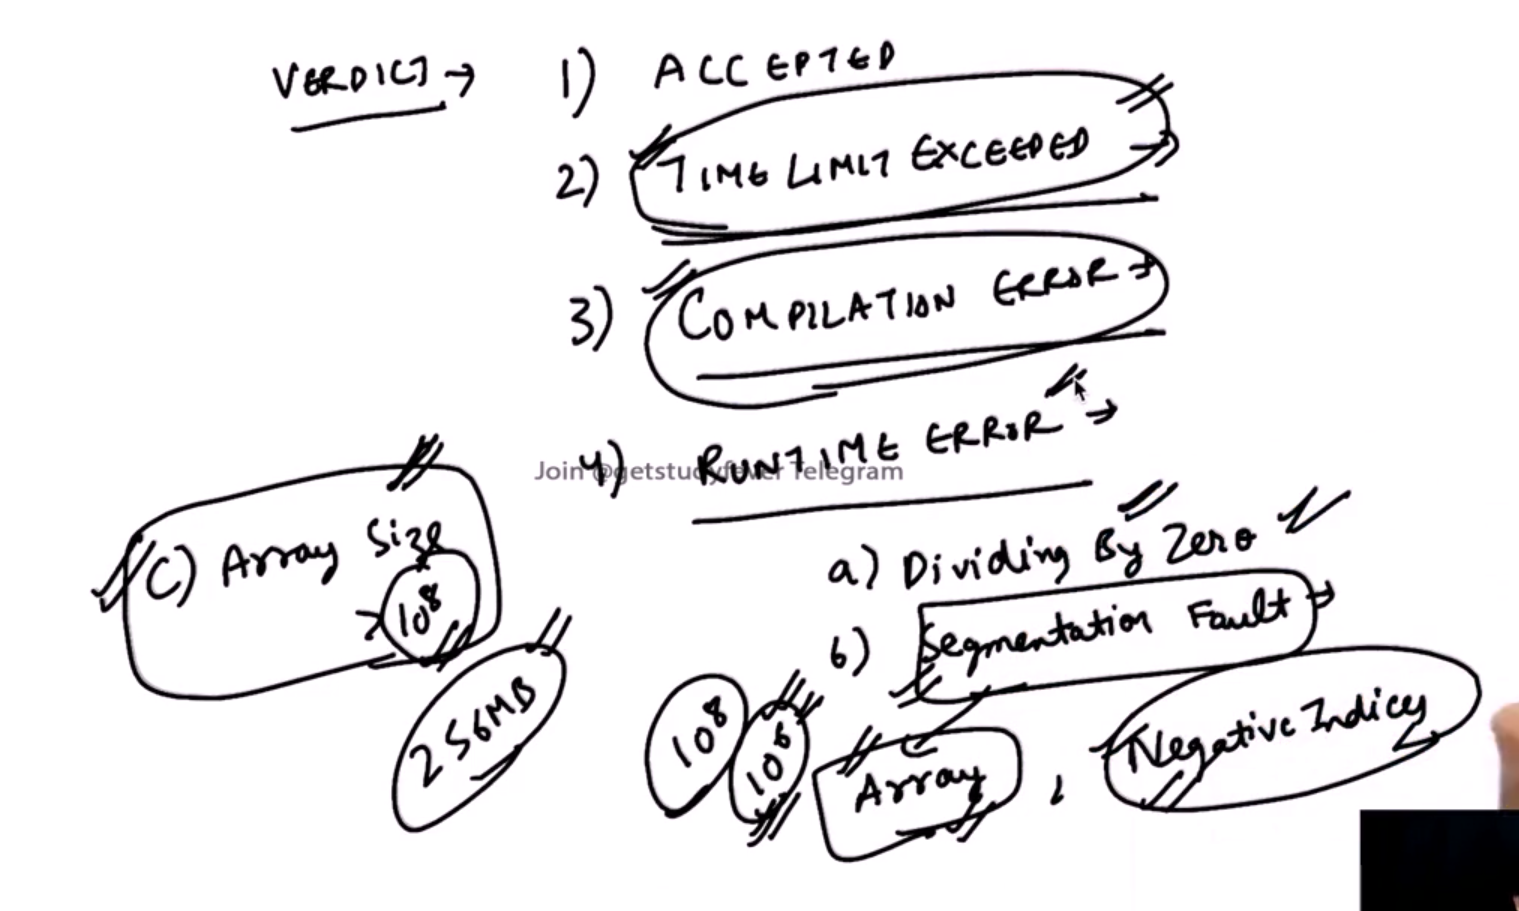 VERDICT → 1) ACCEPTED
2) TIME LIMIT EXCEEDED →
3) COMPILATION ERROR →
4) RUNTIME ERROR →
Join @getstudyfever Telegram
a) Dividing By Zero
b) Segmentation Fault →
Array , Negative Indices
10⁸ 10⁶
C) Array Size
> 10⁸
256MB